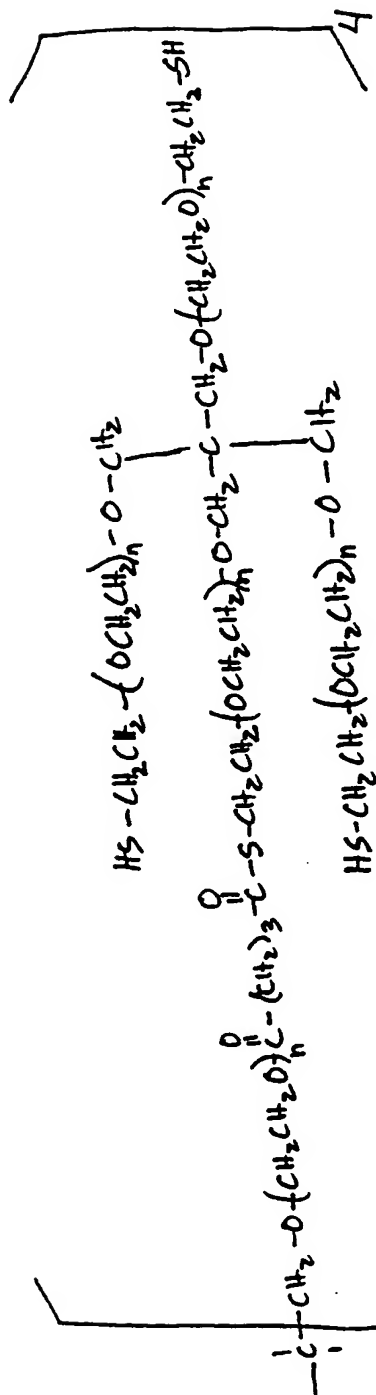 HS-CH₂CH₂-(OCH₂CH₂)n-O-CH₂
-C-CH₂-O(CH₂CH₂O)nC-(CH₂)₃-C-S-CH₂CH₂(OCH₂CH₂)n-O-CH₂-C-CH₂-O(CH₂CH₂O)n-CH₂CH₂-SH
O
O
HS-CH₂CH₂(OCH₂CH₂)n-O-CH₂
4